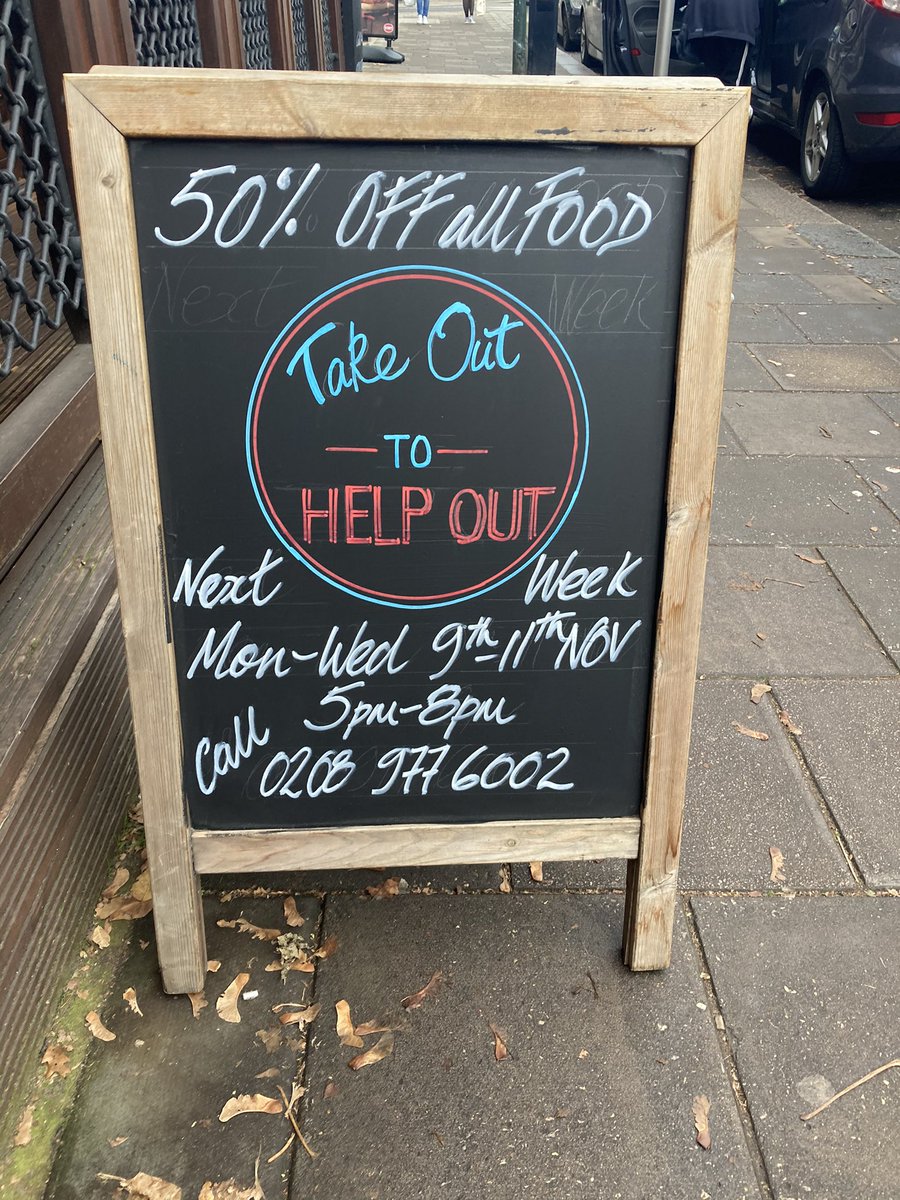 50% OFF all FOOD
Next Week
Take Out
TO
HELP OUT
Next Week
Mon-Wed 9th-11th NOV
5pm-8pm
Call 0208 977 6002